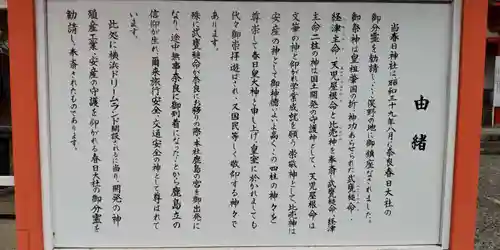 由緒
当春日神社は昭和三十九年八月に奈良春日大社の
御分霊を勧請し、俣野の地に御鎮座なされました。
御祭神は皇祖肇国の折、神功あらせられた武甕槌命、
経津主命、天児屋根命と比売神を奉斎し武甕槌命、経津
主命二柱の神は国土開発の守護神として、天児屋根命は
文筆の神と仰がれ学業成就の願う崇敬神として、比売神は
安産の神として御神徳いよいよ高くこの四柱の神々を
尊崇して春日皇大神と申し上げ、皇室に於かれましても
代々御崇拝遊ばされ、又国民等しく敬仰する神々で
あります。
殊に武甕槌命が奈良にお移りの際、本社鹿島の宮を御出発に
なり、途中無事奈良に御到着になったことから鹿島立の
信仰が生れ、爾来旅行安全、交通安全の神として尊ばれて
います。
此処に横浜ドリームランド開設されるに当り、開発の神
殖産工業、安産の守護を仰がれる春日大社の御分霊を
勧請し、奉斎されたものであります。